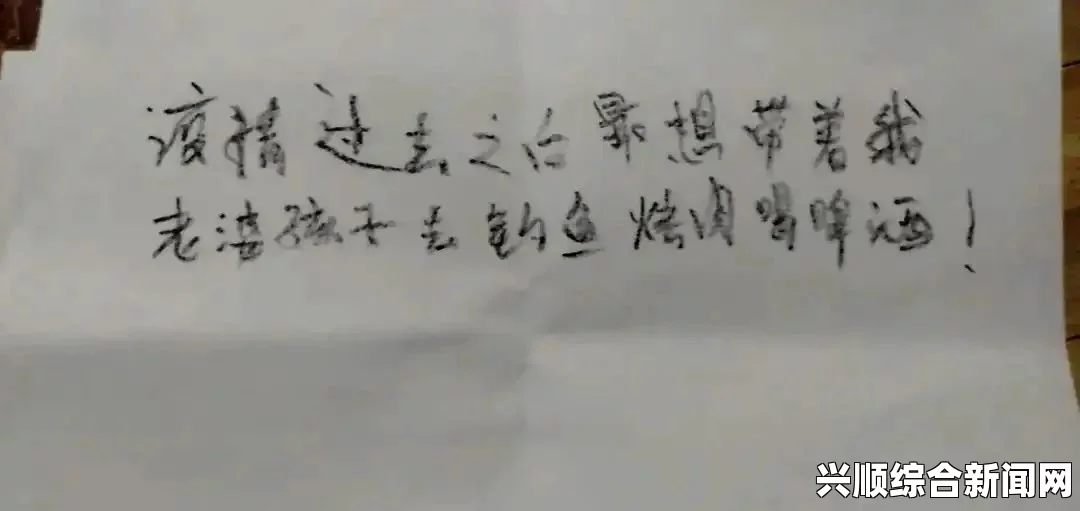 疫情过去之后最想带着我
老婆孩子去钓鱼烤肉喝啤酒！
兴顺综合新闻网